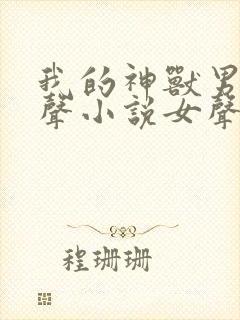 我的神獸男
聲小説女聲
程珊珊